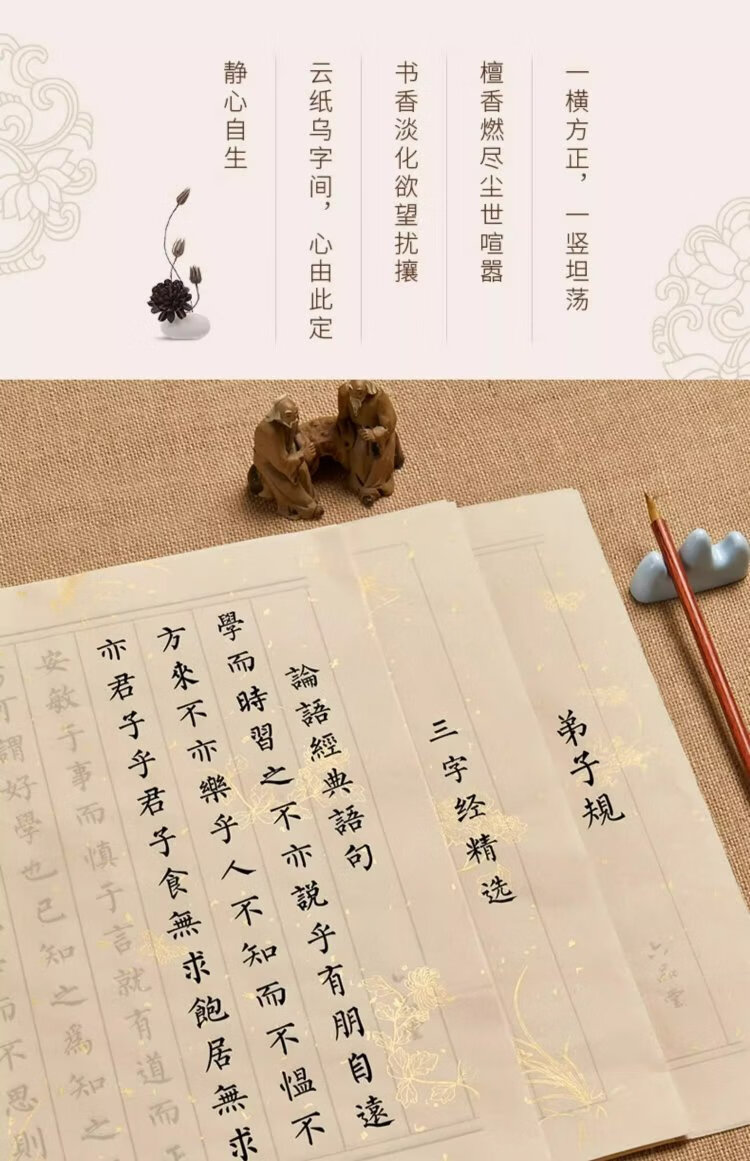 一横方正，一竖坦荡
檀香燃尽尘世喧嚣
书香淡化欲望扰攘
云纸乌字间，心由此定
静心自生
弟子規
三字经精选
論語經典語句
學而時習之不亦説乎有朋自遠
方來不亦樂乎人不知而不愠不
亦君子乎君子食無求飽居無求
安敏于事而慎于言就有道而正
可謂好學也已知之為知之
不思則